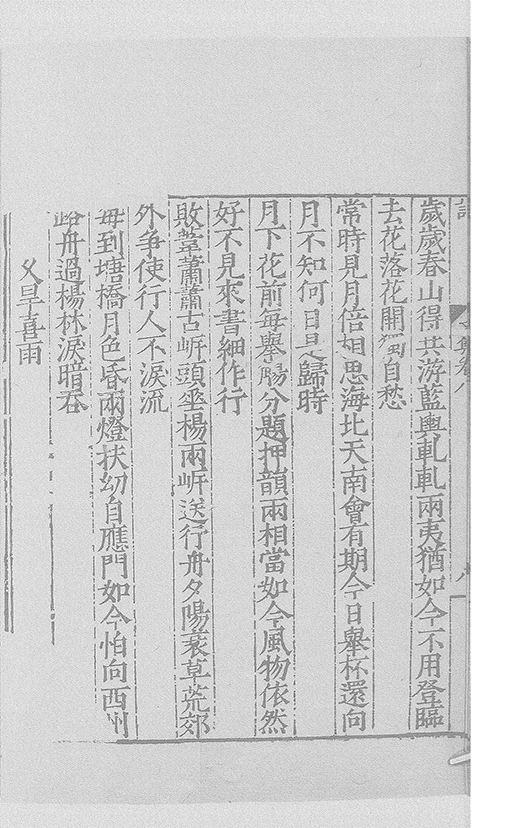 歲歲春山得共游藍輿軋軋兩夷猶如今不用登臨
去花落花開獨自愁
常時見月倍相思海北天南會有期今日舉杯還向
月不知何日是歸時
月下花前每舉觴分題押韻兩相當如今風物依然
好不見來書細作行
敗葦蕭蕭古岍頭垂楊兩岍送行舟夕陽衰草荒郊
外爭使行人不淚流
每到塘橋月色昏兩燈扶幼自應門如今怕向西州
路舟過楊林淚暗吞
久旱喜雨